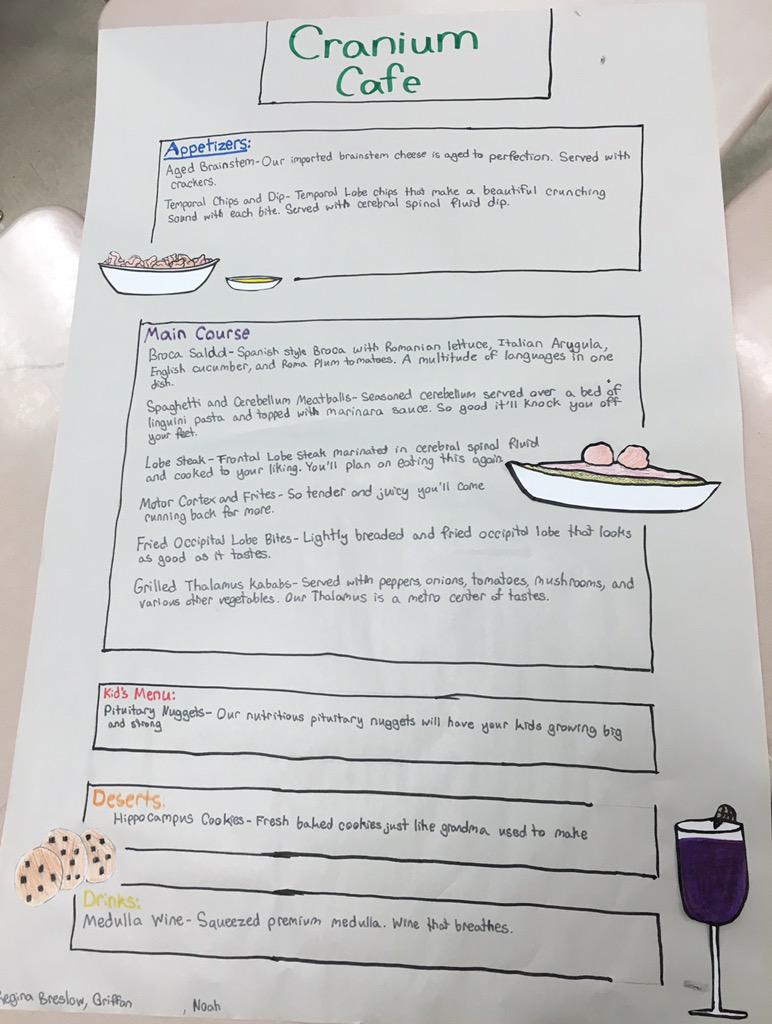 Cranium
Cafe
Appetizers:
Aged Brainstem- Our imported brainstem cheese is aged to perfection. Served with
crackers.
Temporal Chips and Dip- Temporal Lobe chips that make a beautiful crunching
sound with each bite. Served with cerebral spinal fluid dip.
Main Course
Broca Salad- Spanish style Broca with Romanian lettuce, Italian Arugula,
English cucumber, and Roma Plum tomatoes. A multitude of languages in one
dish.
Spaghetti and Cerebellum Meatballs- Seasoned cerebellum served over a bed of
linguini pasta and topped with marinara sauce. So good it'll knock you off
your feet.
Lobe Steak- Frontal Lobe Steak marinated in cerebral spinal fluid
and cooked to your liking. You'll plan on eating this again.
Motor Cortex and Frites- So tender and juicy you'll come
running back for more.
Fried Occipital Lobe Bites- Lightly breaded and fried occipital lobe that looks
as good as it tastes.
Grilled Thalamus Kababs- Served with peppers, onions, tomatoes, mushrooms, and
various other vegetables. Our Thalamus is a metro center of tastes.
Kid's Menu:
Pituitary Nuggets- Our nutritious pituitary nuggets will have your kids growing big
and strong
Deserts.
Hippocampus Cookies- Fresh baked cookies just like grandma used to make
Drinks:
Medulla Wine- Squeezed premium medulla. Wine that breathes.
Regina Breslow, Griffan , Noah